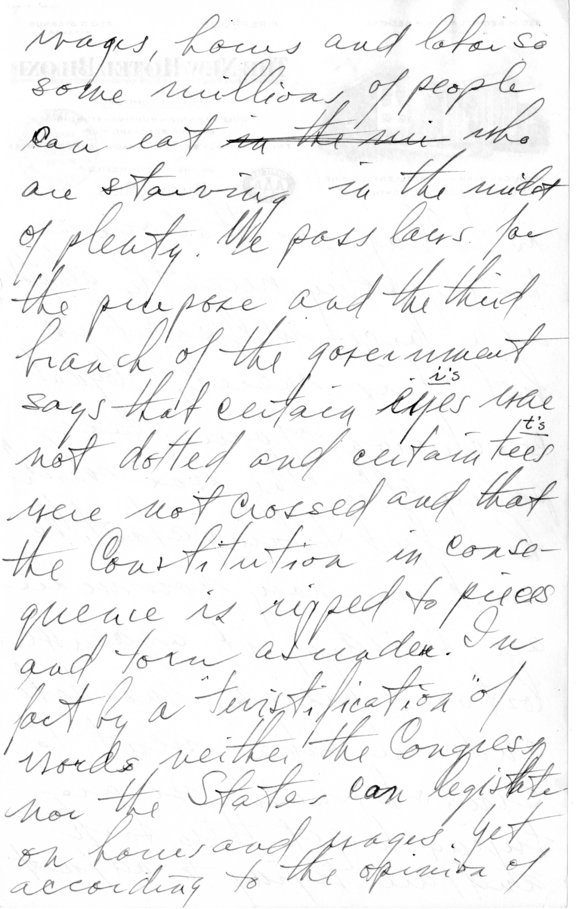 wages, hours and labor so
some millions of people
can eat in the mi who
are starving in the midst
of plenty. We pass laws for
the purpose and the third
branch of the government
i's
says that certain eyes were
t's
not dotted and certain tees
were not crossed and that
the Constitution in conse-
quence is ripped to pieces
and torn asunder. In
fact by a "twistification" of
words neither the Congress
nor the States can legislate
on hours and wages. Yet
according to the opinion of